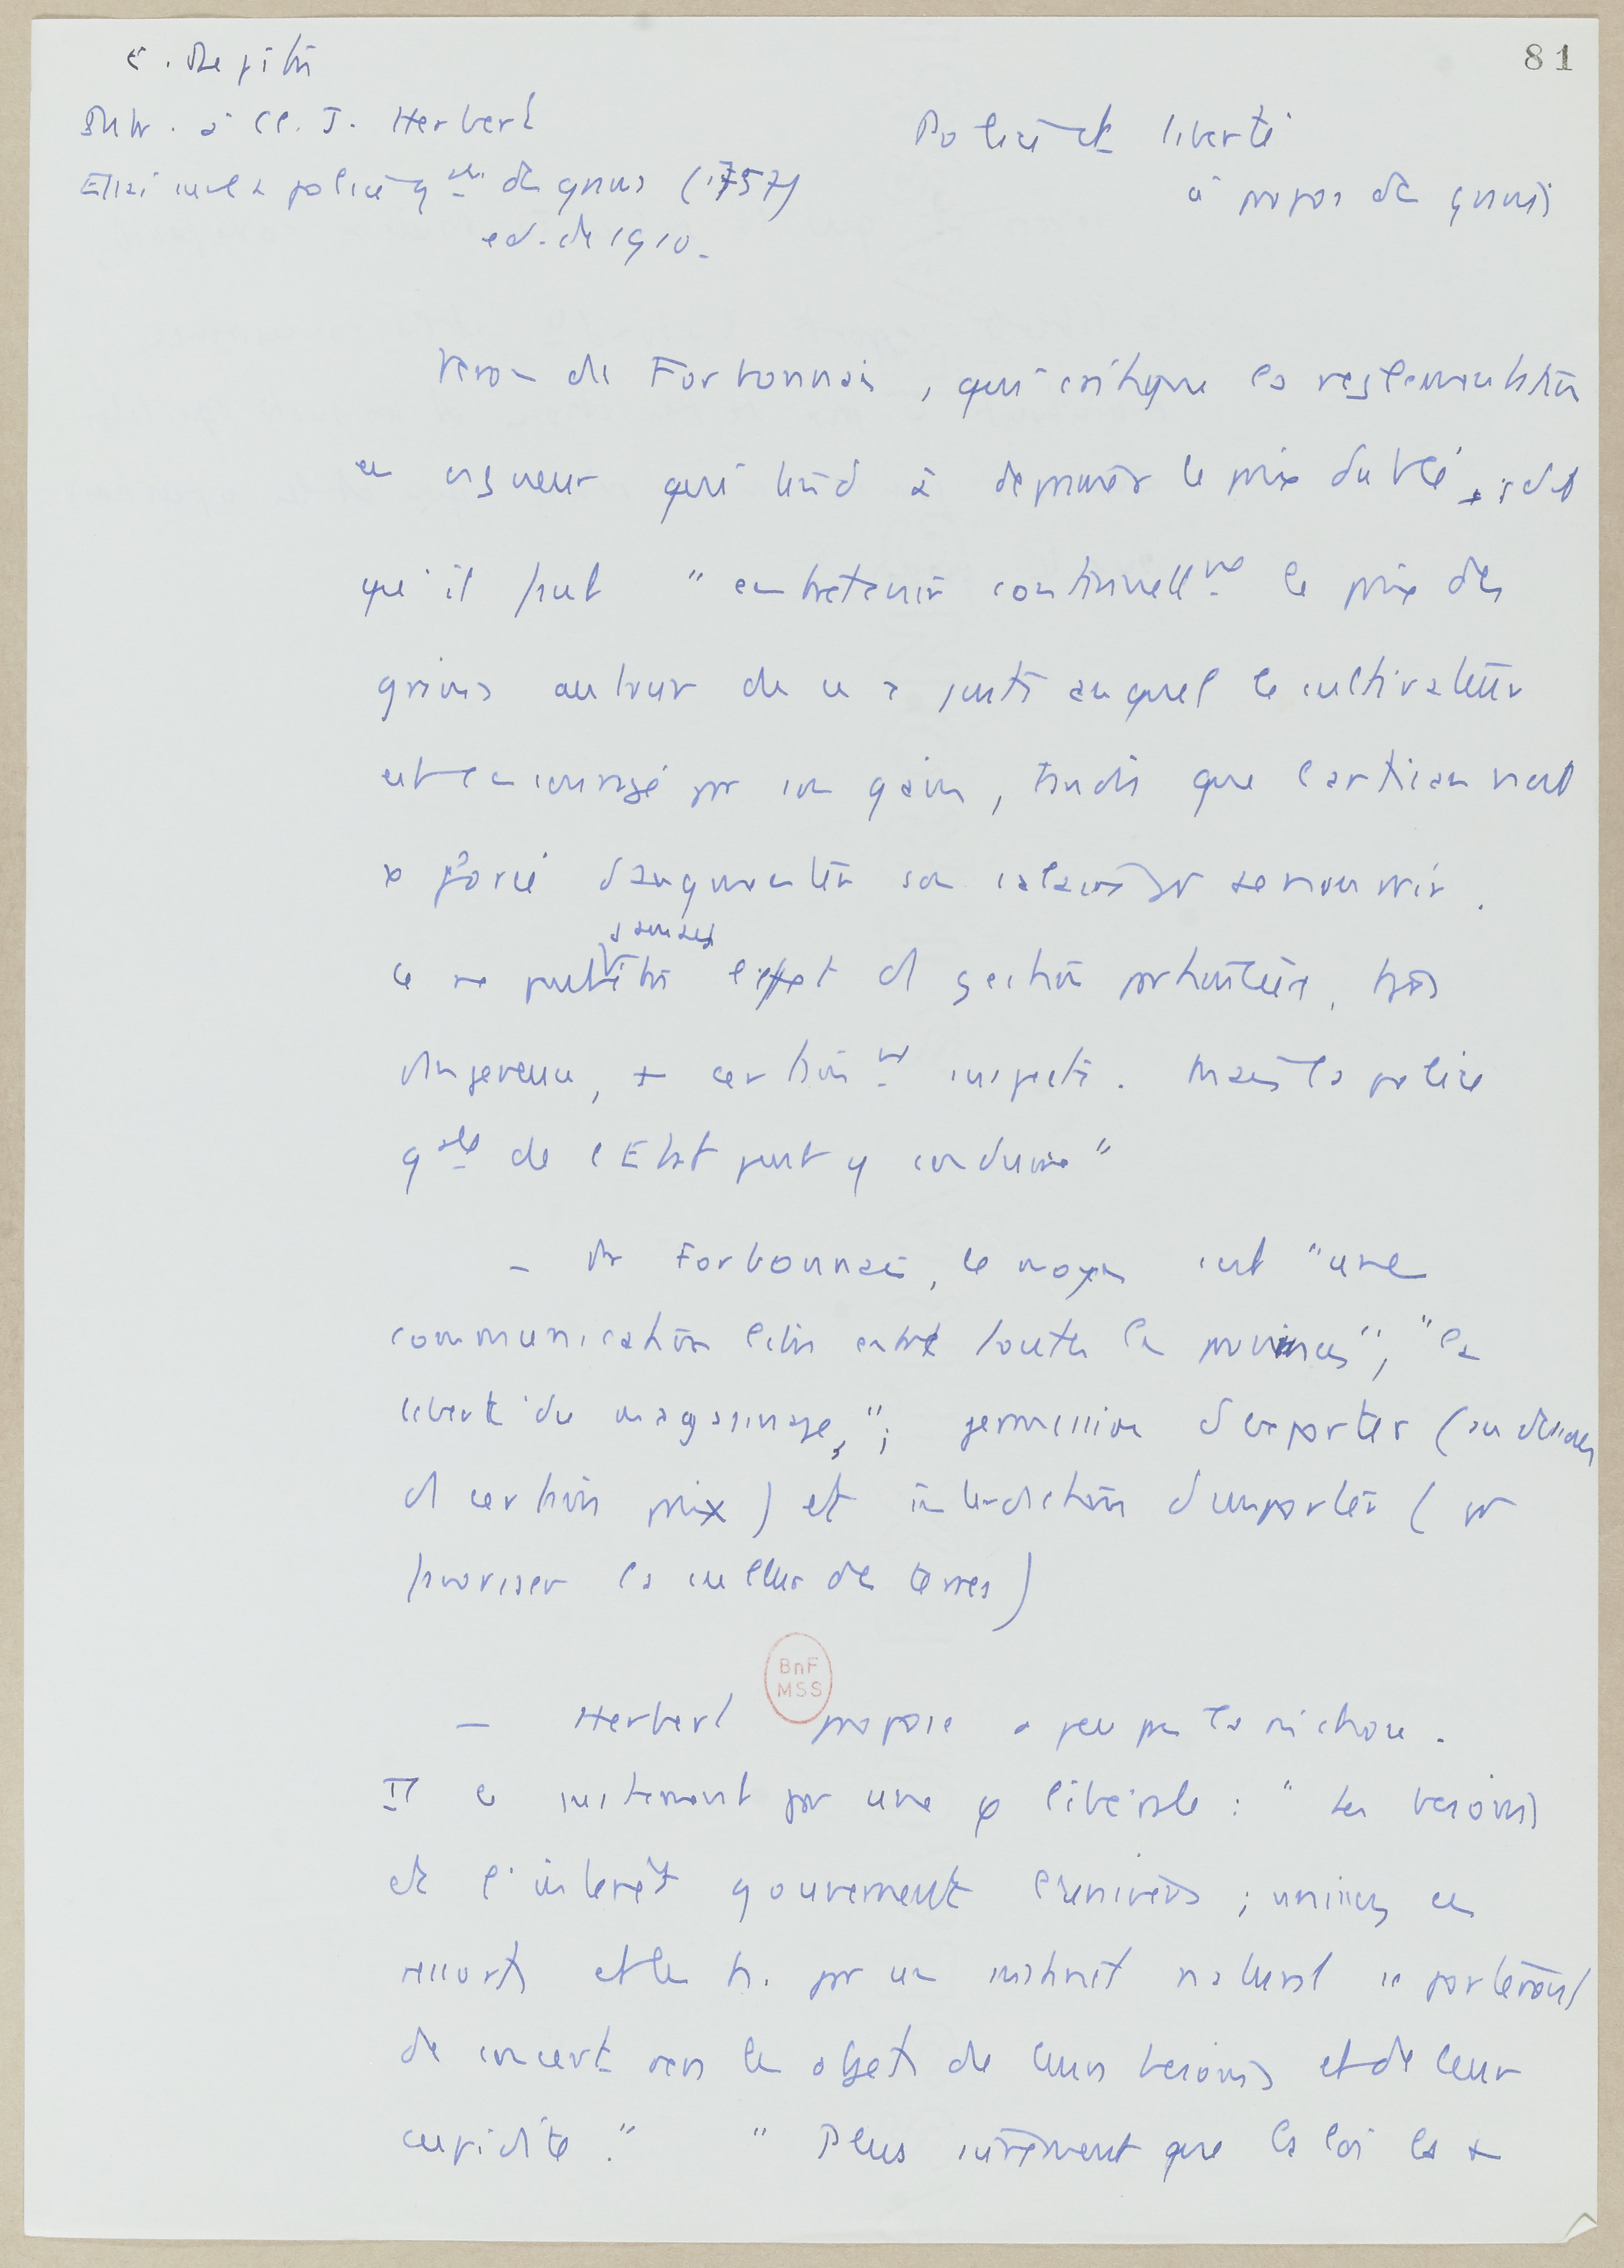 81
E. Depitre
Intr. à Cl. J. Herbert
Essai sur la police gale des grains (1757)
ed. de 1910.
Police et liberté
à propos des grains
Veron de Forbonnais, qui critique la reglementation
en vigueur qui tend à deprimer le prix du blé, +
qu'il faut "entretenir continuellnt le prix des
grains autour de un certain auquel le cultivateur
est encouragé par son gain, tandis que l'artisan n'est
x forcé d'augmenter son salaire pr se nourrir.
Ce ne peut être jamais l'effet d gestion particulière, trop
dangereuse, + certainnt suspecte. Mais la police
gale de l'Etat peut y conduire"
- Pr Forbonnais, le moyen c'est "une
communication libre entre toutes les provinces"; "la
liberté du magasinage,"; permission d'exporter (au dessous
d certain prix) et interdiction d'importer (pr
favoriser la culture des terres)
- Herbert propose à peu près la même chose.
Il le soutenant par une φ libérale: "Les besoins
et l'intérêt gouvernent l'univers; unissez ces
ressorts et les h. par un instinct naturel se porteront
de concert vers les objets de leurs besoins et de leur
cupidité." "Plus sûrement que la loi la +
BnF
MSS